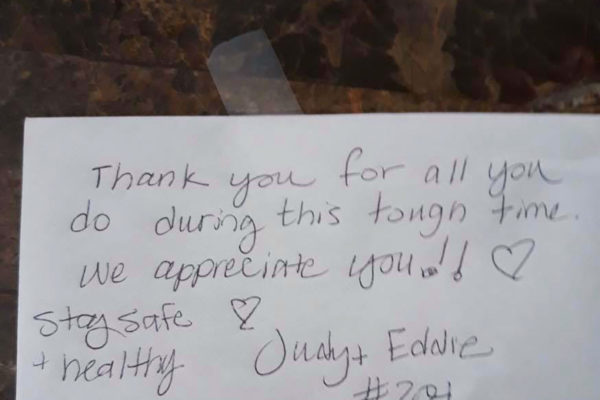 Thank you for all you
do during this tough time.
We appreciate you!! ♡
Stay safe ♡
+ healthy
Judy + Eddie
#201